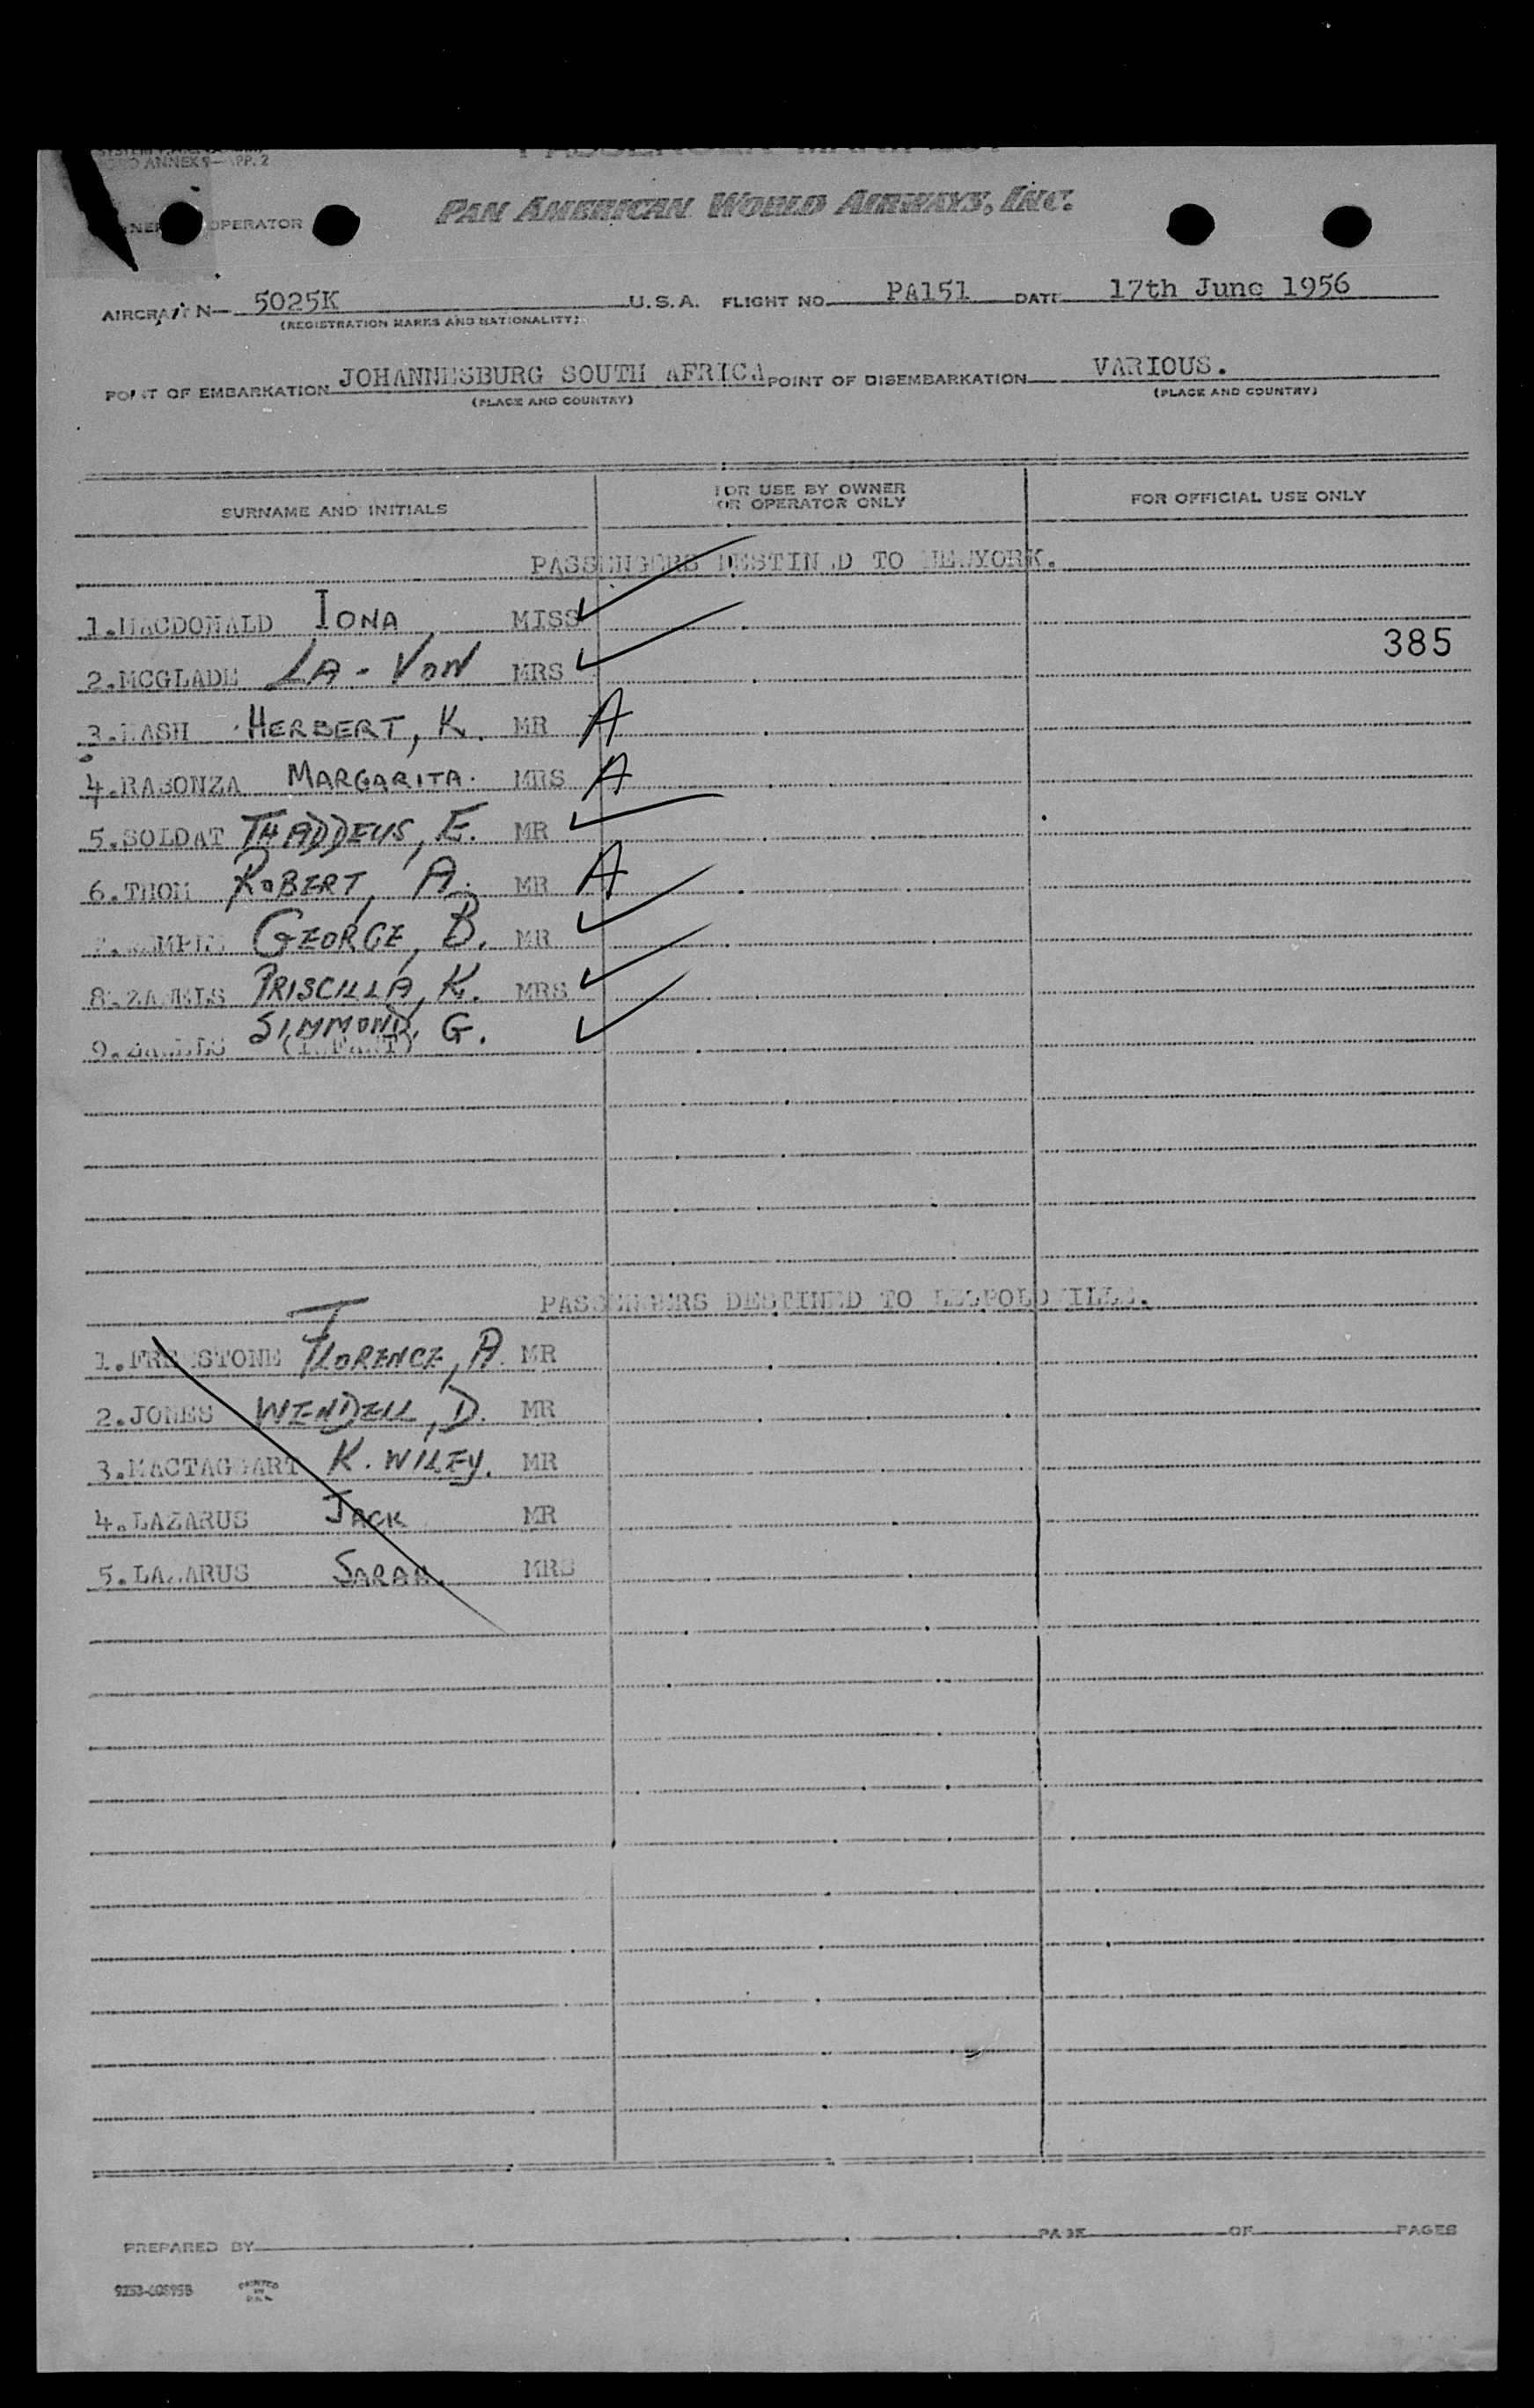 ANNEX 9— APP. 2
OPERATOR
PAN AMERICAN WORLD AIRWAYS, INC.
AIRCRAFT N— 5025K U.S.A. FLIGHT NO. PA151 DATE 17th June 1956
(REGISTRATION MARKS AND NATIONALITY)
POINT OF EMBARKATION JOHANNESBURG SOUTH AFRICA POINT OF DISEMBARKATION VARIOUS.
(PLACE AND COUNTRY) (PLACE AND COUNTRY)
SURNAME AND INITIALS FOR USE BY OWNER OR OPERATOR ONLY FOR OFFICIAL USE ONLY
PASSENGERS DESTINED TO NEWYORK.
1.MACDONALD IONA MISS
385
2.MCGLADE LA-VON MRS
3.NASH HERBERT, K. MR A
4.RABONZA MARGARITA. MRS A
5.SOLDAT THADDEUS, E. MR
6.THOM ROBERT, A. MR A
GEORGE, B. MR
8. PRISCILLA, K. MRS
SIMMOND, G.
9. (INFANT)
PASSENGERS DESTINED TO LEOPOLDVILLE.
1.FREESTONE FLORENCE, A. MR
2.JONES WENDELL, D. MR
3.MACTAGGART K. WILEY. MR
4.LAZARUS JACK MR
5.LAZARUS SARAH. MRS
PREPARED BY PAGE OF PAGES
PRINTED IN U.S.A.